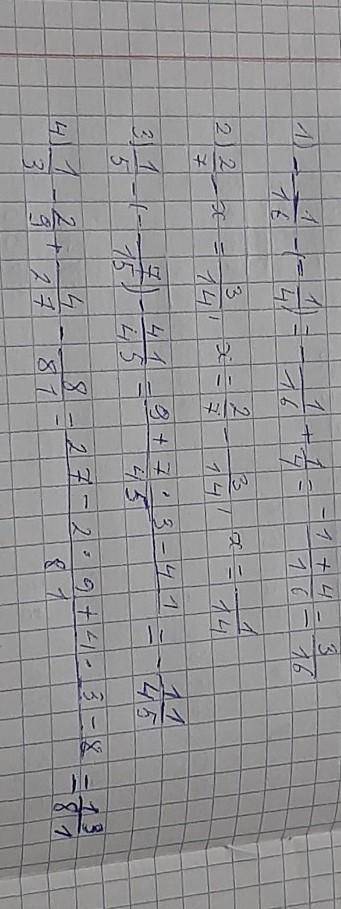 1) -1/16 - (-1/4) = -1/16 + 1/4 = (-1+4)/16 = 3/16
2) 2/7 - x = 3/14, x = 2/7 - 3/14, x = 1/14
3) 1/5 - (-7/15) - 41/45 = (9+7·3-41)/45 = -11/45
4) 1/3 - 2/9 + 4/27 - 8/81 = (27-2·9+4·3-8)/81 = 13/81